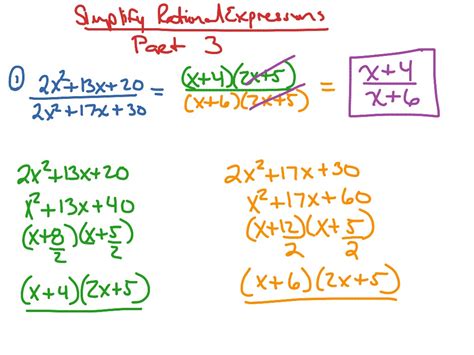 Simplify Rational Expressions
Part 3
① (2x²+13x+20)/(2x²+17x+30) = (x+4)(2x+5)/(x+6)(2x+5) = (x+4)/(x+6)
2x²+13x+20
x²+13x+40
(x+8/2)(x+5/2)
(x+4)(2x+5)
2x²+17x+30
x²+17x+60
(x+12/2)(x+5/2)
(x+6)(2x+5)